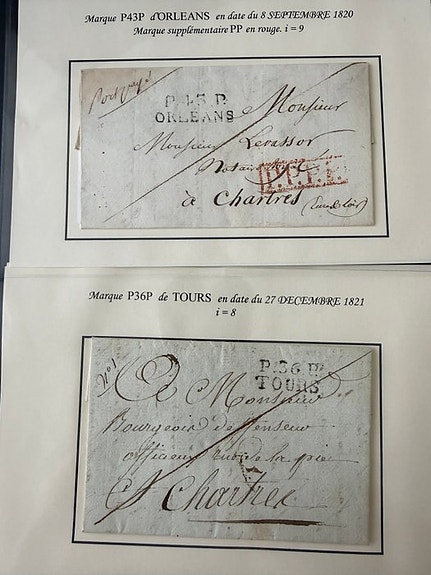 Marque P43P d'ORLEANS en date du 8 SEPTEMBRE 1820
Marque supplémentaire PP en rouge. i = 9
Port payé
P. 43. P.
ORLÉANS
Monsieur
Monsieur Levassor
Notaire
P.P.P.P.
à Chartres
(Eure & Loir)
Marque P36P de TOURS en date du 27 DECEMBRE 1821
i = 8
N° 1
P. 36. P.
TOURS
A Monsieur
Bourgeois
officieux rue de la pie
A Chartres